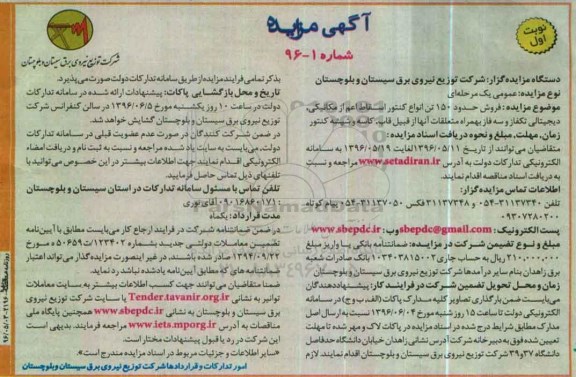 آگهی مزایده
شماره ۱-۹۶
نوبت اول
شرکت توزیع نیروی برق سیستان و بلوچستان
دستگاه مزایده گزار: شرکت توزیع نیروی برق سیستان و بلوچستان
نوع مزایده: عمومی یک مرحله‌ای
موضوع مزایده: فروش حدود ۱۵۰ تن انواع کنتور اسقاط اعم از مکانیکی،
دیجیتالی تکفاز و سه فاز بهمراه متعلقات آنها از قبیل قاب، کاسه و شیشه کنتور
زمان، مهلت، مبلغ و نحوه دریافت اسناد مزایده:
متقاضیان می‌توانند از تاریخ ۱۳۹۶/۰۵/۱۱ لغایت ۱۳۹۶/۰۵/۱۹ به سامانه
الکترونیکی تدارکات دولت به آدرس www.setadiran.ir مراجعه و نسبت
به دریافت اسناد مناقصه اقدام نمایند.
اطلاعات تماس مزایده گزار:
تلفن ۳۱۱۳۷۳۴۰-۰۵۴ و ۳۱۱۳۷۳۴۸ فکس ۳۱۱۳۷۰۵۰-۰۵۴ پیام کوتاه
۰۹۳۰۷۲۸۰۲۰۰
پست الکترونیک: sbepdc@gmail.com وب: www.sbepdc.ir
مبلغ و نوع تضمین شرکت در مزایده: ضمانتنامه بانکی یا واریز مبلغ
۲۱۰.۰۰۰.۰۰۰ ریال به حساب جاری ۰۱۰۳۴۰۳۸۱۵۰۰۲ بانک صادرات شعبه
برق زاهدان بنام سایر درآمدها شرکت توزیع نیروی برق سیستان و بلوچستان
زمان و محل تحویل تضمین شرکت در فرایند کار: پیشنهاددهندگان
می‌بایست ضمن بارگذاری تصاویر کلیه مدارک پاکات (الف، ب و ج) در سامانه
الکترونیکی دولت تا ساعت ۱۵ روز شنبه مورخ ۱۳۹۶/۰۶/۰۴ نسبت به ارسال اصل
مدارک مطابق شرایط درج شده در اسناد مزایده در پاکات لاک و مهر شده تا مهلت
تعیین شده فوق به دبیرخانه شرکت آدرس نشانی زاهدان خیابان دانشگاه حدفاصل
دانشگاه ۳۷ و ۳۹ شرکت توزیع نیروی برق سیستان و بلوچستان اقدام نمایند. لازم
بذکر تمامی فرایند مزایده از طریق سامانه تدارکات دولت صورت می‌پذیرد.
تاریخ و محل بازگشایی پاکات: پیشنهادات ارائه شده در سامانه تدارکات
دولت در ساعت ۱۰ روز یکشنبه مورخ ۱۳۹۶/۰۶/۵ در سالن کنفرانس شرکت
توزیع نیروی برق سیستان و بلوچستان گشایش خواهد شد.
در ضمن شرکت کنندگان در صورت عدم عضویت قبلی در سامانه تدارکات
دولت، می‌بایست به سایت یاد شده مراجعه و نسبت به ثبت نام و دریافت امضاء
الکترونیکی اقدام نمایند جهت اطلاعات بیشتر در این خصوص می‌توانید با
تلفنهای ذیل تماس حاصل فرمایید.
تلفن تماس با مسئول سامانه تدارکات در استان سیستان و بلوچستان
۰۹۰۱۶۸۶۰۱۷۱ آقای نوری
مدت قرارداد: یکماه
در ضمن ضمانتنامه شرکت در فرایند ارجاع کار می‌بایست مطابق با آیین‌نامه
تضمین معاملات دولتی جدید بشماره ۱۲۳۴۰۲/ت۵۰۶۵۹ه مورخ
۱۳۹۴/۰۹/۲۲ صادر شده باشند، در غیر اینصورت مزایده گذار می‌تواند اعتبار
ضمانتنامه های که مطابق آیین‌نامه یاد شده نباشد رد نماید.
ضمنا متقاضیان می توانند جهت کسب اطلاعات بیشتر به سایت معاملات
توانیر به نشانی Tender.tavanir.org.ir یا سایت شرکت توزیع نیروی
برق سیستان و بلوچستان به نشانی www.sbepdc.ir همچنین پایگاه ملی
مناقصات به آدرس www.iets.mporg.ir مراجعه فرمایند. بدیهی است
این شرکت در رد یا قبول پیشنهادات مختار است.
«سایر اطلاعات و جزئیات مربوط در اسناد مزایده مندرج است».
امور تدارکات و قراردادها شرکت توزیع نیروی برق سیستان و بلوچستان